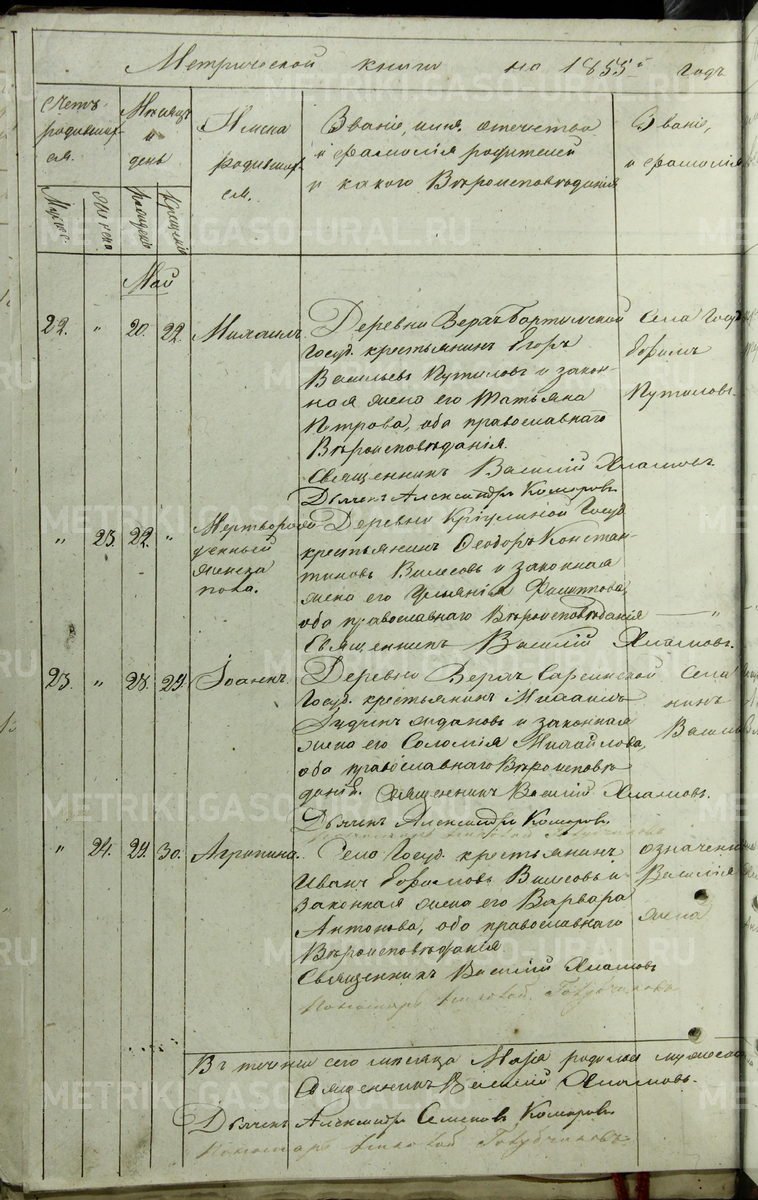 Метрической книги на 1855й годъ
Счетъ родившихся.
Мужес.
Женско
Мѣсяцъ и день
рожденія
Крещенія
Имена родившихся.
Званіе, имя, отечество
и фамилія родителей
и какого Вѣроисповѣданія
Званіе,
и фамилія
Май
22. " 20. 22. Михаилъ.
Деревни Верхъ
Госуд. крестьянинъ Егоръ
Васильевъ Путиловъ и закон-
ная жена его Татьяна
Петрова, оба православнаго
Вѣроисповѣданія.
Священникъ Василій
Дьячекъ Александръ Комаровъ
Села Госуд
Ефимъ
Путиловъ.
" 23. 22. "
Мертворо
денный
женска
пола.
Деревни Госуд
крестьянинъ Ѳеодоръ Констан-
тиновъ Вилесовъ и законная
жена его Филиппова,
оба православнаго Вѣроисповѣданія — " 
Священникъ Василій
23. " 28. 29. Іоаннъ.
Деревни Верхъ Сарсинской
Госуд. крестьянинъ Михаилъ
и законная
жена его Соломія Михайлова,
оба православнаго Вѣроисповѣ
данія. Священникъ Василій
Дьячекъ Александръ Комаровъ
Села
нинъ
Васил
" 24. 29. 30. Агрипина.
Села Госуд. крестьянинъ
Иванъ Ефимовъ Вилесовъ и
законная жена его Варвара
Антонова, оба православнаго
Вѣроисповѣданія
Священникъ Василій
Пономарь
означенн
Василія
жена
Въ теченіи сего мѣсяца Маія родилось мужеска
Священникъ Василій
Дьячекъ Александръ Семеновъ Комаровъ
Пономарь
METRIKI.GASO-URAL.RU